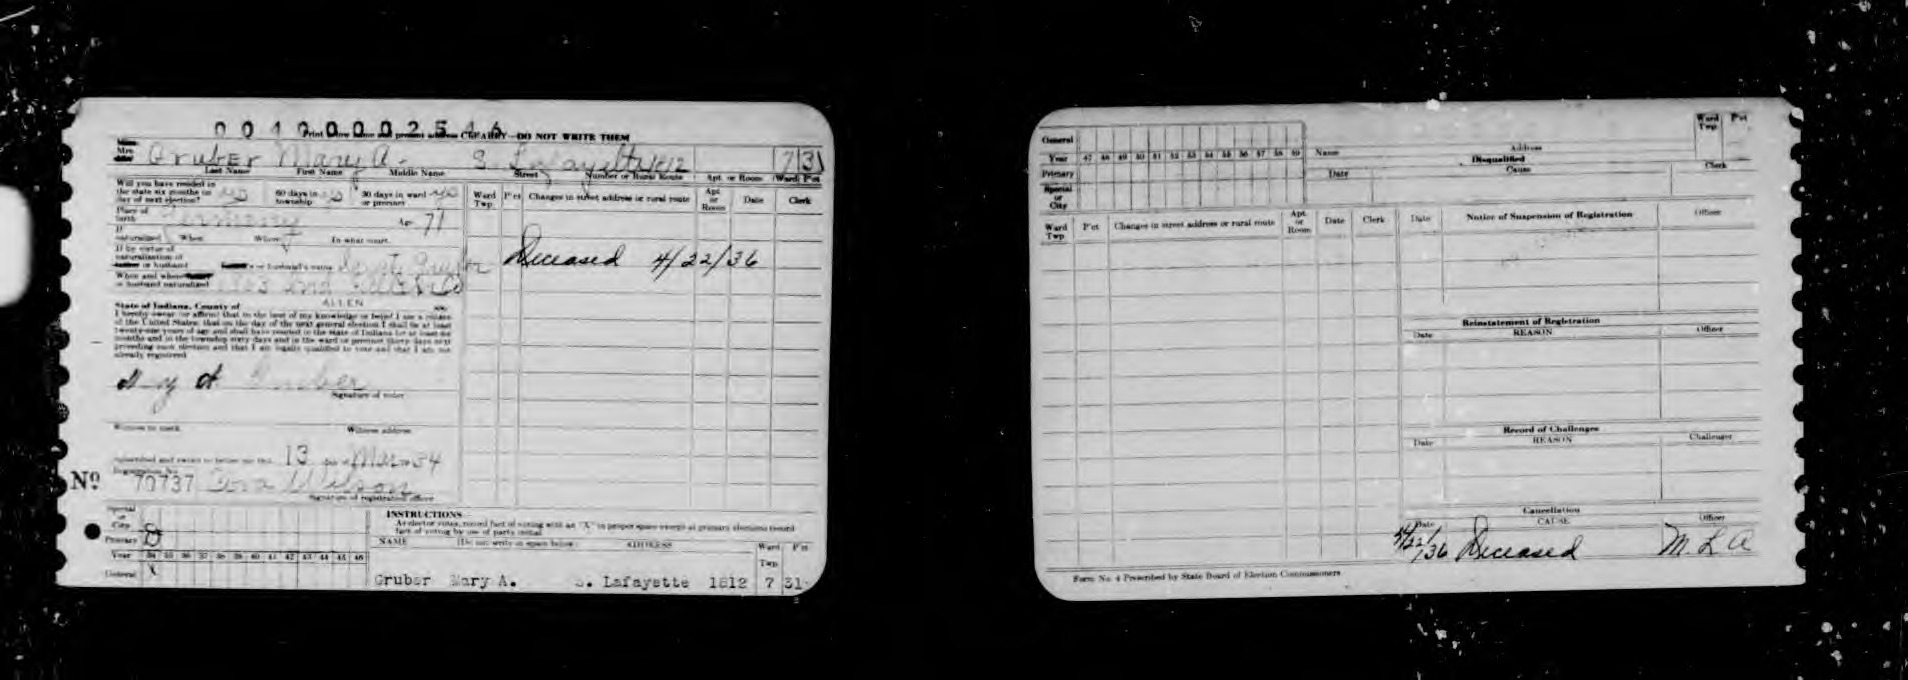 0 0 4 0 0 0 0 2 5 4 6
Print below name and present address CLEARLY—DO NOT WRITE THEM
Mrs. Gruber Mary A. S. Lafayette 1812 7 31
Last Name First Name Middle Name Street Number or Rural Route Apt. or Room Ward P'ct
Will you have resided in the state six months on day of next election? yes 60 days in township yes 30 days in ward or precinct yes
Ward Twp. P'ct Changes in street address or rural route Apt. or Room Date Clerk
Place of birth Germany Age 71
If naturalized When Where In what court
If by virtue of naturalization of or husband or husband's name Gruber
Deceased 4/22/36
When and where or husband naturalized
State of Indiana, County of ALLEN ss:
I hereby swear (or affirm) that to the best of my knowledge or belief I am a citizen
of the United States; that on the day of the next general election I shall be at least
twenty-one years of age and shall have resided in the state of Indiana for at least six
months and in the township sixty days and in the ward or precinct thirty days next
preceding such election and that I am legally qualified to vote and that I am not
already registered.
Mary A Gruber
Signature of voter
Witness to mark Witness address
Subscribed and sworn to before me this 13 day Mar 34
Registration No.
No 70737 Wilson
Signature of registration officer
Special or City
Primary D
Year 34 35 36 37 38 39 40 41 42 43 44 45 46
General X
INSTRUCTIONS
As elector votes, record fact of voting with an "X" in proper space except at primary elections record
fact of voting by use of party initial
NAME (Do not write in space below) ADDRESS Ward Twp. P'ct
Gruber Mary A. S. Lafayette 1812 7 31
General
Year 47 48 49 50 51 52 53 54 55 56 57 58 59
Primary
Special or City
Name Address Ward Twp. P'ct
Disqualified
Date Cause Clerk
Ward Twp. P'ct Changes in street address or rural route Apt. or Room Date Clerk
Date Notice of Suspension of Registration Officer
Reinstatement of Registration
Date REASON Officer
Record of Challenges
Date REASON Challenger
Cancellation
Date CAUSE Officer
4/22/36 Deceased M. L A
Form No. 4 Prescribed by State Board of Election Commissioners